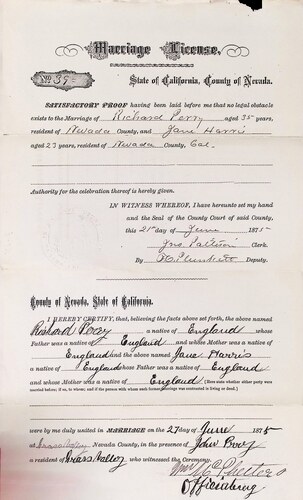 Marriage License.
No. 39
State of California, County of Nevada.
SATISFACTORY PROOF having been laid before me that no legal obstacle
exists to the Marriage of Richard Perry aged 35 years,
resident of Nevada County, and Jane Harris
aged 27 years, resident of Nevada County, Cal.
Authority for the celebration thereof is hereby given.
IN WITNESS WHEREOF, I have hereunto set my hand
and the Seal of the County Court of said County,
this 21st day of June 1875
Jno Pattison Clerk.
By Plunkett Deputy.
County of Nevada, State of California.
I HEREBY CERTIFY, that, believing the facts above set forth, the above named
Richard Perry a native of England whose
Father was a native of England and whose Mother was a native
of England and the above named Jane Harris
a native of England whose Father was a native of England
and whose Mother was a native of England (Here state whether either party were
married before; if so, to whom; and if the person with whom such former marriage was contracted is living or dead.)
were by me duly united in MARRIAGE on the 27 day of June 1875
at Grass Valley Nevada County, in the presence of John
a resident of Grass Valley who witnessed the Ceremony.
Wm
Officiating